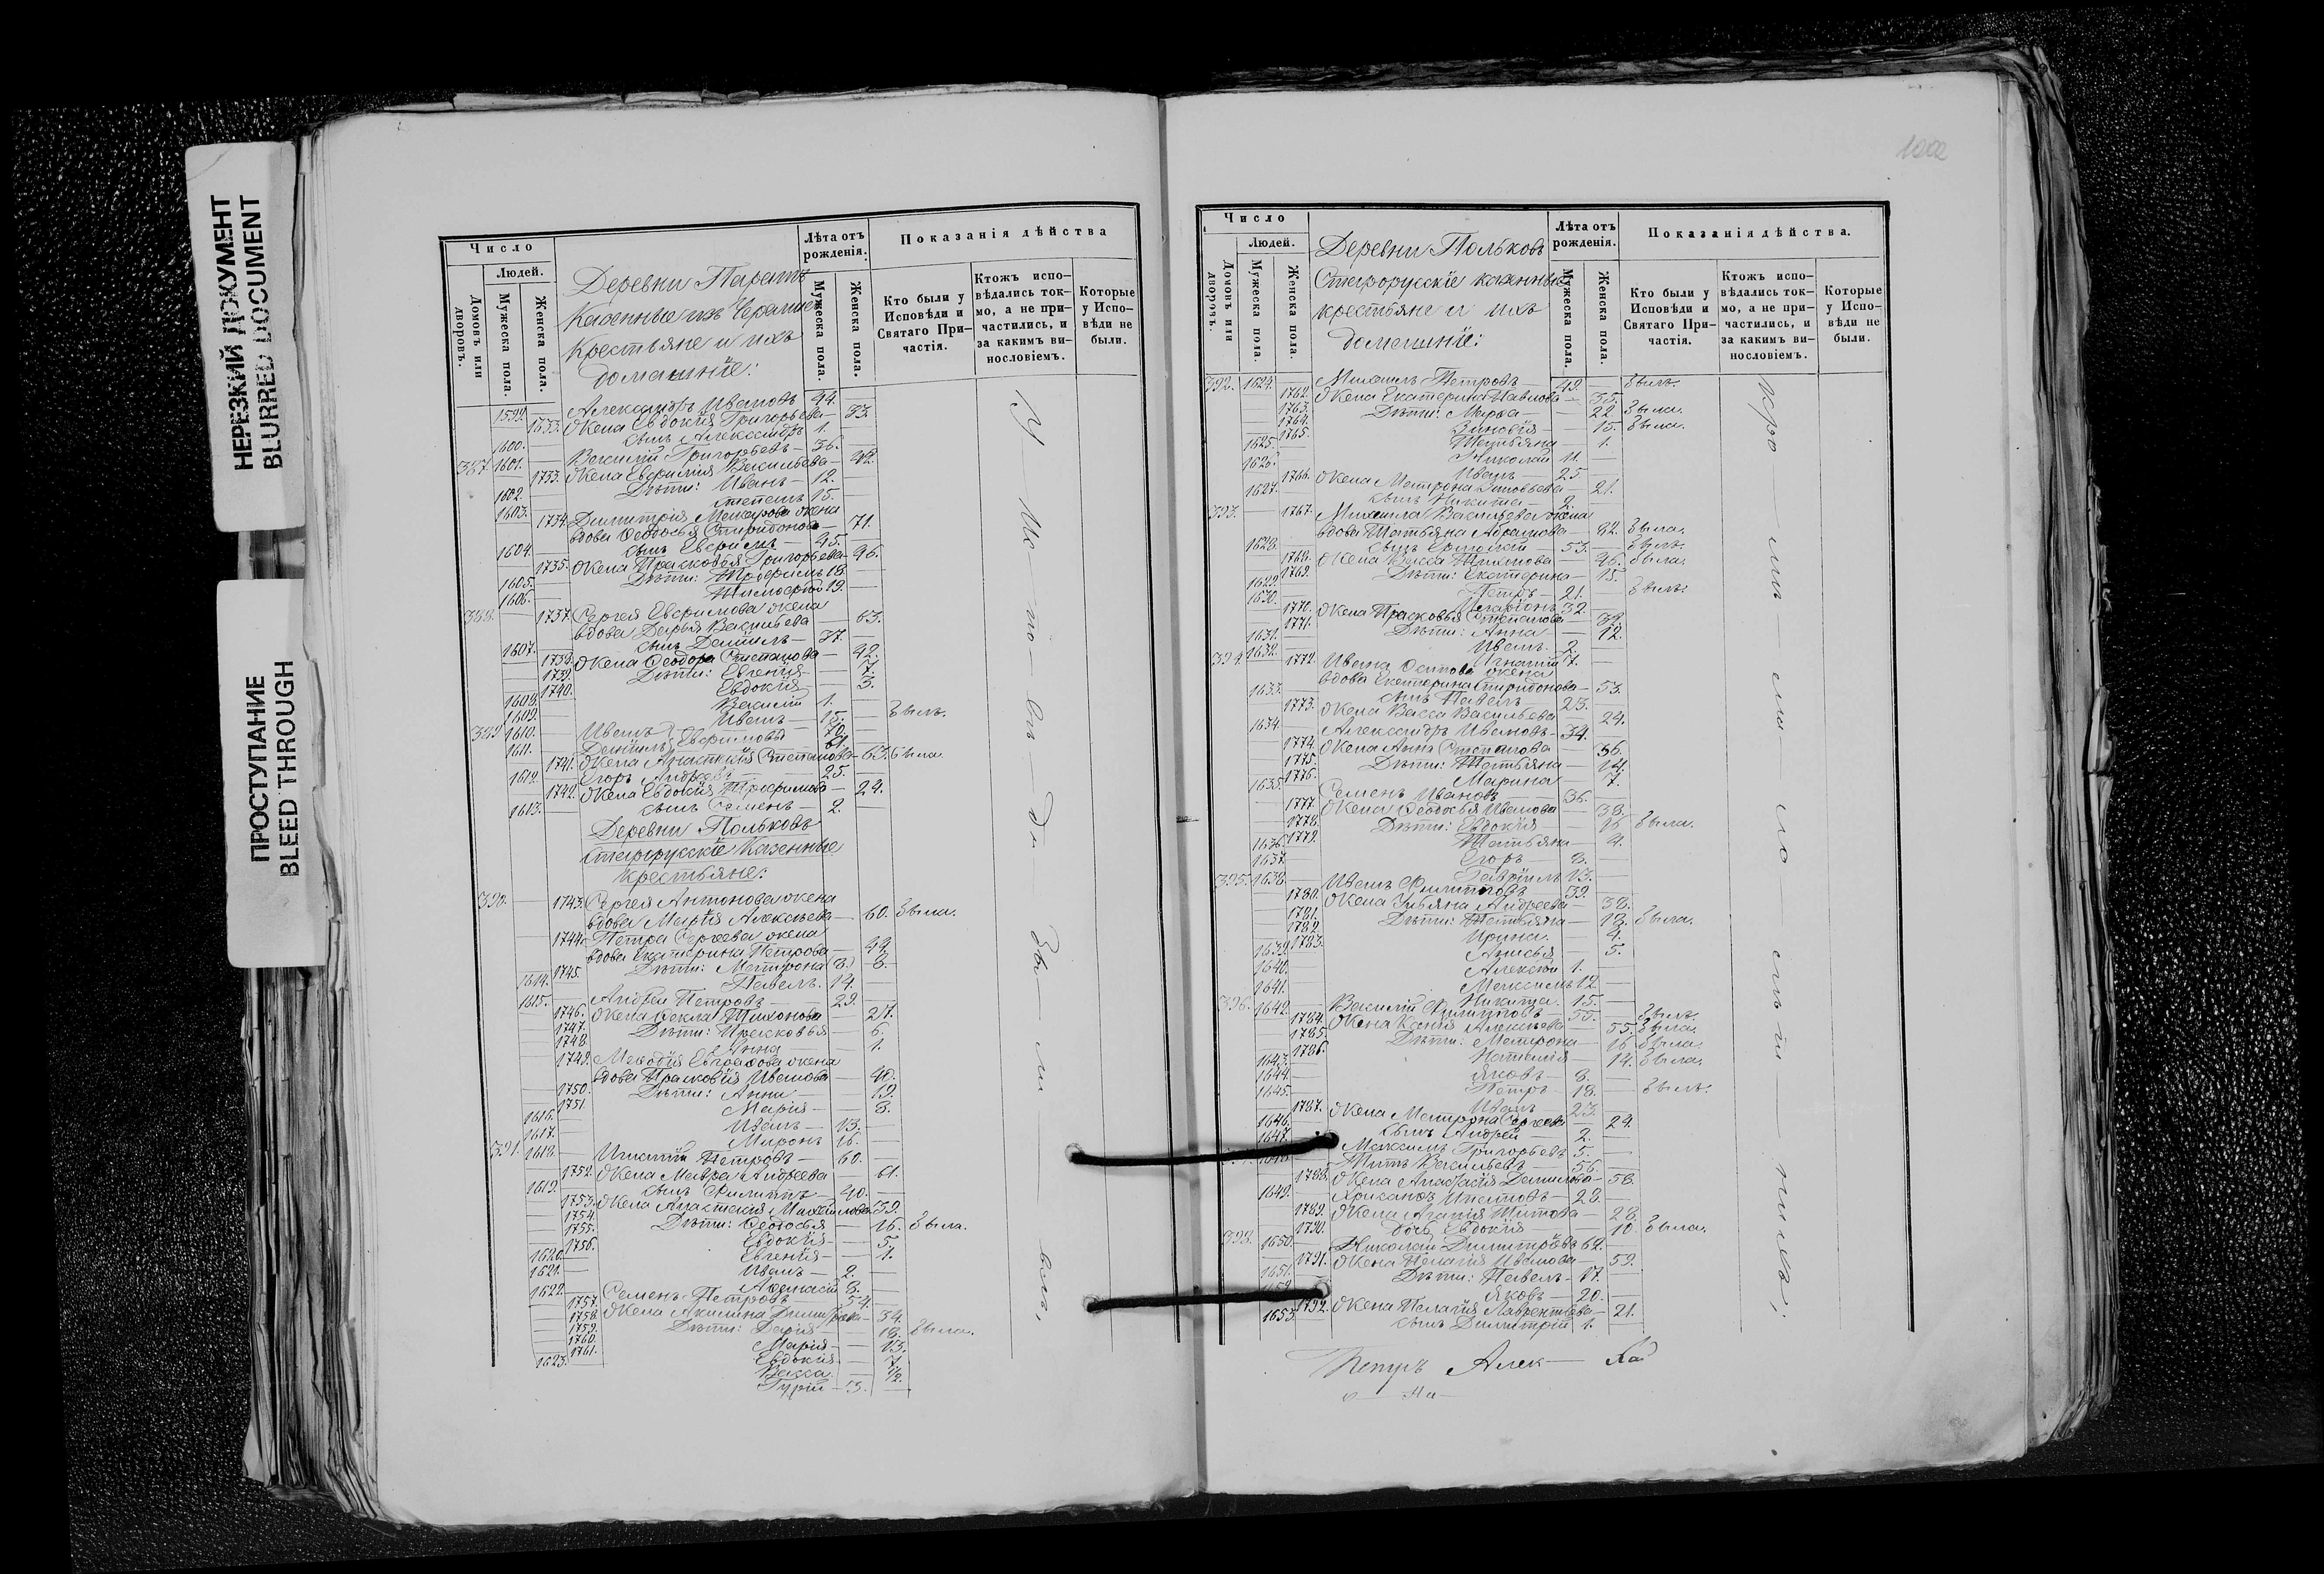 НЕРЕЗКИЙ ДОКУМЕНТ
BLURRED DOCUMENT
ПРОСТУПАНИЕ
BLEED THROUGH
Число
Людей.
Домовъ или дворовъ.
Мужеска пола.
Женска пола.
Деревни
Казенные изъ
Крестьяне и ихъ
домашніе:
Лѣта отъ рожденія.
Мужеска пола.
Женска пола.
Показанія дѣйства
Кто были у Исповѣди и Святаго Причастія.
Ктожъ исповѣдались токмо, а не причастились, и за какимъ винословіемъ.
Которые у Исповѣди не были.
Александръ Ивановъ 44.
Жена Евдокія Григорьева 33.
1600. сынъ Александръ 1.
387. 1601. Василій Григорьевъ 36.
1733. Жена Евфимія Васильева 42.
1602. Дѣти: Иванъ 12.
1603. Степанъ 15.
1734. Димитрія Макарова жена
вдова Ѳеодосья Спиридонова 71.
1604. сынъ Евфимъ 45.
1735. Жена Прасковья Григорьева 46.
1605. Дѣти: Трофимъ 18.
1606. Тимофей 19.
388. 1737. Сергея Евфимова жена
вдова Дарья Васильева 63.
1607. сынъ Даніилъ 37.
1738. Жена Ѳеодора Степанова 42.
1739. Дѣти: Евгенія 7.
1740. Евдокія 3.
1608. Василій 1.
1609. Иванъ 15. былъ.
389. 1610. Иванъ 70.
1611. Даніилъ Евфимовы 61.
1741. Жена Анастасія Степанова 63. была.
1612. Егоръ Андреевъ 25.
1742. Жена Евдокія Трофимова 24.
1613. сынъ Семенъ 2.
Деревни Польковъ
Старорусскіе Казенные
Крестьяне:
390. 1743. Сергея Антонова жена
вдова Марія Алексѣева 60. была.
1744. Петра Сергеева жена
вдова Екатерина Петрова
1745. Дѣти: Матрона (8.) 8.
1614. Павелъ. 14.
1615. Андрей Петровъ 29.
1746. Жена Ѳекла Тихонова 27.
1747. Дѣти: Прасковья 6.
1748. Анна 1.
1749. Меѳодія Евграфова жена
вдова Прасковія Иванова 40.
1750. Дѣти: Анна 19.
1751. Марія 8.
1616. Иванъ 13.
1617. Миронъ 16.
391. 1618. Игнатій Петровъ 60.
1752. Жена Мавра Андреева 61.
1619. сынъ Филиппъ 40.
1753. Жена Анастасія Михайлова 39.
1754. Дѣти: Ѳеодосья 16. была.
1755. Евдокія 5.
1756. Евгенія 1.
1620. Иванъ 2.
1621. Аѳанасій 8.
1622. Семенъ Петровъ 54.
1757. Жена Акилина Димитріева 54.
1758. Дѣти: Дарія 18. была.
1759. Марія 13.
1760. Евдокія 7.
1761. Васса ½.
1623. Гурій 3.
1202
Число
Людей.
Домовъ или дворовъ.
Мужеска пола.
Женска пола.
Деревни Польковъ
Старорусскіе казенные
крестьяне и ихъ
домашніе:
Лѣта отъ рожденія.
Мужеска пола.
Женска пола.
Показанія дѣйства.
Кто были у Исповѣди и Святаго Причастія.
Ктожъ исповѣдались токмо, а не причастились, и за какимъ винословіемъ.
Которые у Исповѣди не были.
392. 1624. Михаилъ Петровъ 49. былъ.
1762. Жена Екатерина Павлова 55.
1763. Дѣти: Марѳа 22. была.
1764. Зиновія 15. была.
1765. Татьяна 1.
1625. Николай 11.
1626. Иванъ 25.
1766. Жена Матрона Зиновьева 21.
1627. сынъ Никита 2.
393. 1767. Михаила Васильева жена
вдова Татьяна Абрамова 82. была.
1628. сынъ 53. былъ.
1768. Жена Васса Тихонова 46. была.
1769. Дѣти: Екатерина 15.
1629. Петръ 21. былъ.
1630. Иларіонъ 32.
1770. Жена Прасковья Степанова
1771. Дѣти: Анна 12.
1631. Иванъ 2.
1632. Игнатій 7.
394. 1772. Ивана Осипова жена
вдова Екатерина Спиридонова 53.
1633. сынъ Павелъ 23.
1773. Жена Васса Васильева 24.
1634. Александръ Ивановъ 34.
1774. Жена Анна Степанова 36.
1775. Дѣти: Татьяна 14.
1776. Марина 7.
1635. Семенъ Ивановъ 36.
1777. Жена Ѳеодосья Иванова 38.
1778. Дѣти: Евдокія 16 была.
1779. Татьяна 9.
1636. Егоръ 8.
1637. Гавріилъ 13.
395. 1638. Иванъ Филипповъ 39.
1780. Жена Ульяна Андреева 38.
1781. Дѣти: Татьяна 18. была.
1782. Ирина 4.
1783. Анисья 5.
1639. Алексѣй 1.
1640. Максимъ 12
1641. Никита. 15.
396. 1642. Василій Филипповъ 55. былъ.
1784. Жена Ксенія Алексѣева 55. была.
1785. Дѣти: Матрона 16 была.
1786. Наталія 14. была.
1643. Яковъ 8.
1644. Петръ 18. былъ.
1645. Иванъ 23.
1787. Жена Матрона Сергеева 24.
1646. сынъ Андрей 2.
1647. Максимъ Григорьевъ 5.
Титъ Васильевъ 56.
1788. Жена Анастасія Данилова 58.
1649. Игнатовъ 28.
1789. Жена Агапія Титова 28.
1790. дочь Евдокія 10. была.
398. 1650. Николай Димитріевъ 62.
1791. Жена Пелагія Иванова 59.
1651. Дѣти: Павелъ 17.
Яковъ 20.
1792. Жена Пелагія Лаврентьева 21.
1653. сынъ Димитрій 1.